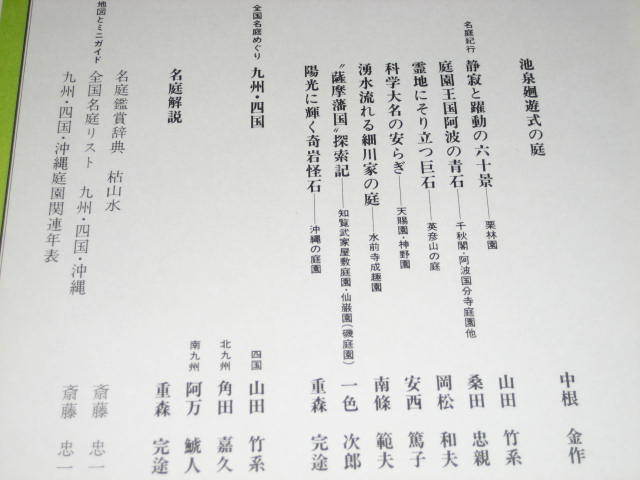 池泉廻遊式の庭 中根 金作
名庭紀行
静寂と躍動の六十景――栗林園 山田 竹系
庭園王国阿波の青石――千秋閣・阿波国分寺庭園他 桑田 忠親
霊地にそり立つ巨石――英彦山の庭 岡松 和夫
科学大名の安らぎ――天賜園・神野園 安西 篤子
湧水流れる細川家の庭――水前寺成趣園 南條 範夫
〝薩摩藩国〟探索記――知覧武家屋敷庭園・仙巌園(磯庭園) 一色 次郎
陽光に輝く奇岩怪石――沖縄の庭園 重森 完途
全国名庭めぐり 九州・四国
四国 山田 竹系
北九州 角田 嘉久
南九州 阿万 鯱人
名庭解説 重森 完途
地図とミニガイド
名庭鑑賞辞典 枯山水 斎藤 忠一
全国名庭リスト 九州・四国・沖縄
九州・四国・沖縄庭園関連年表 斎藤 忠一